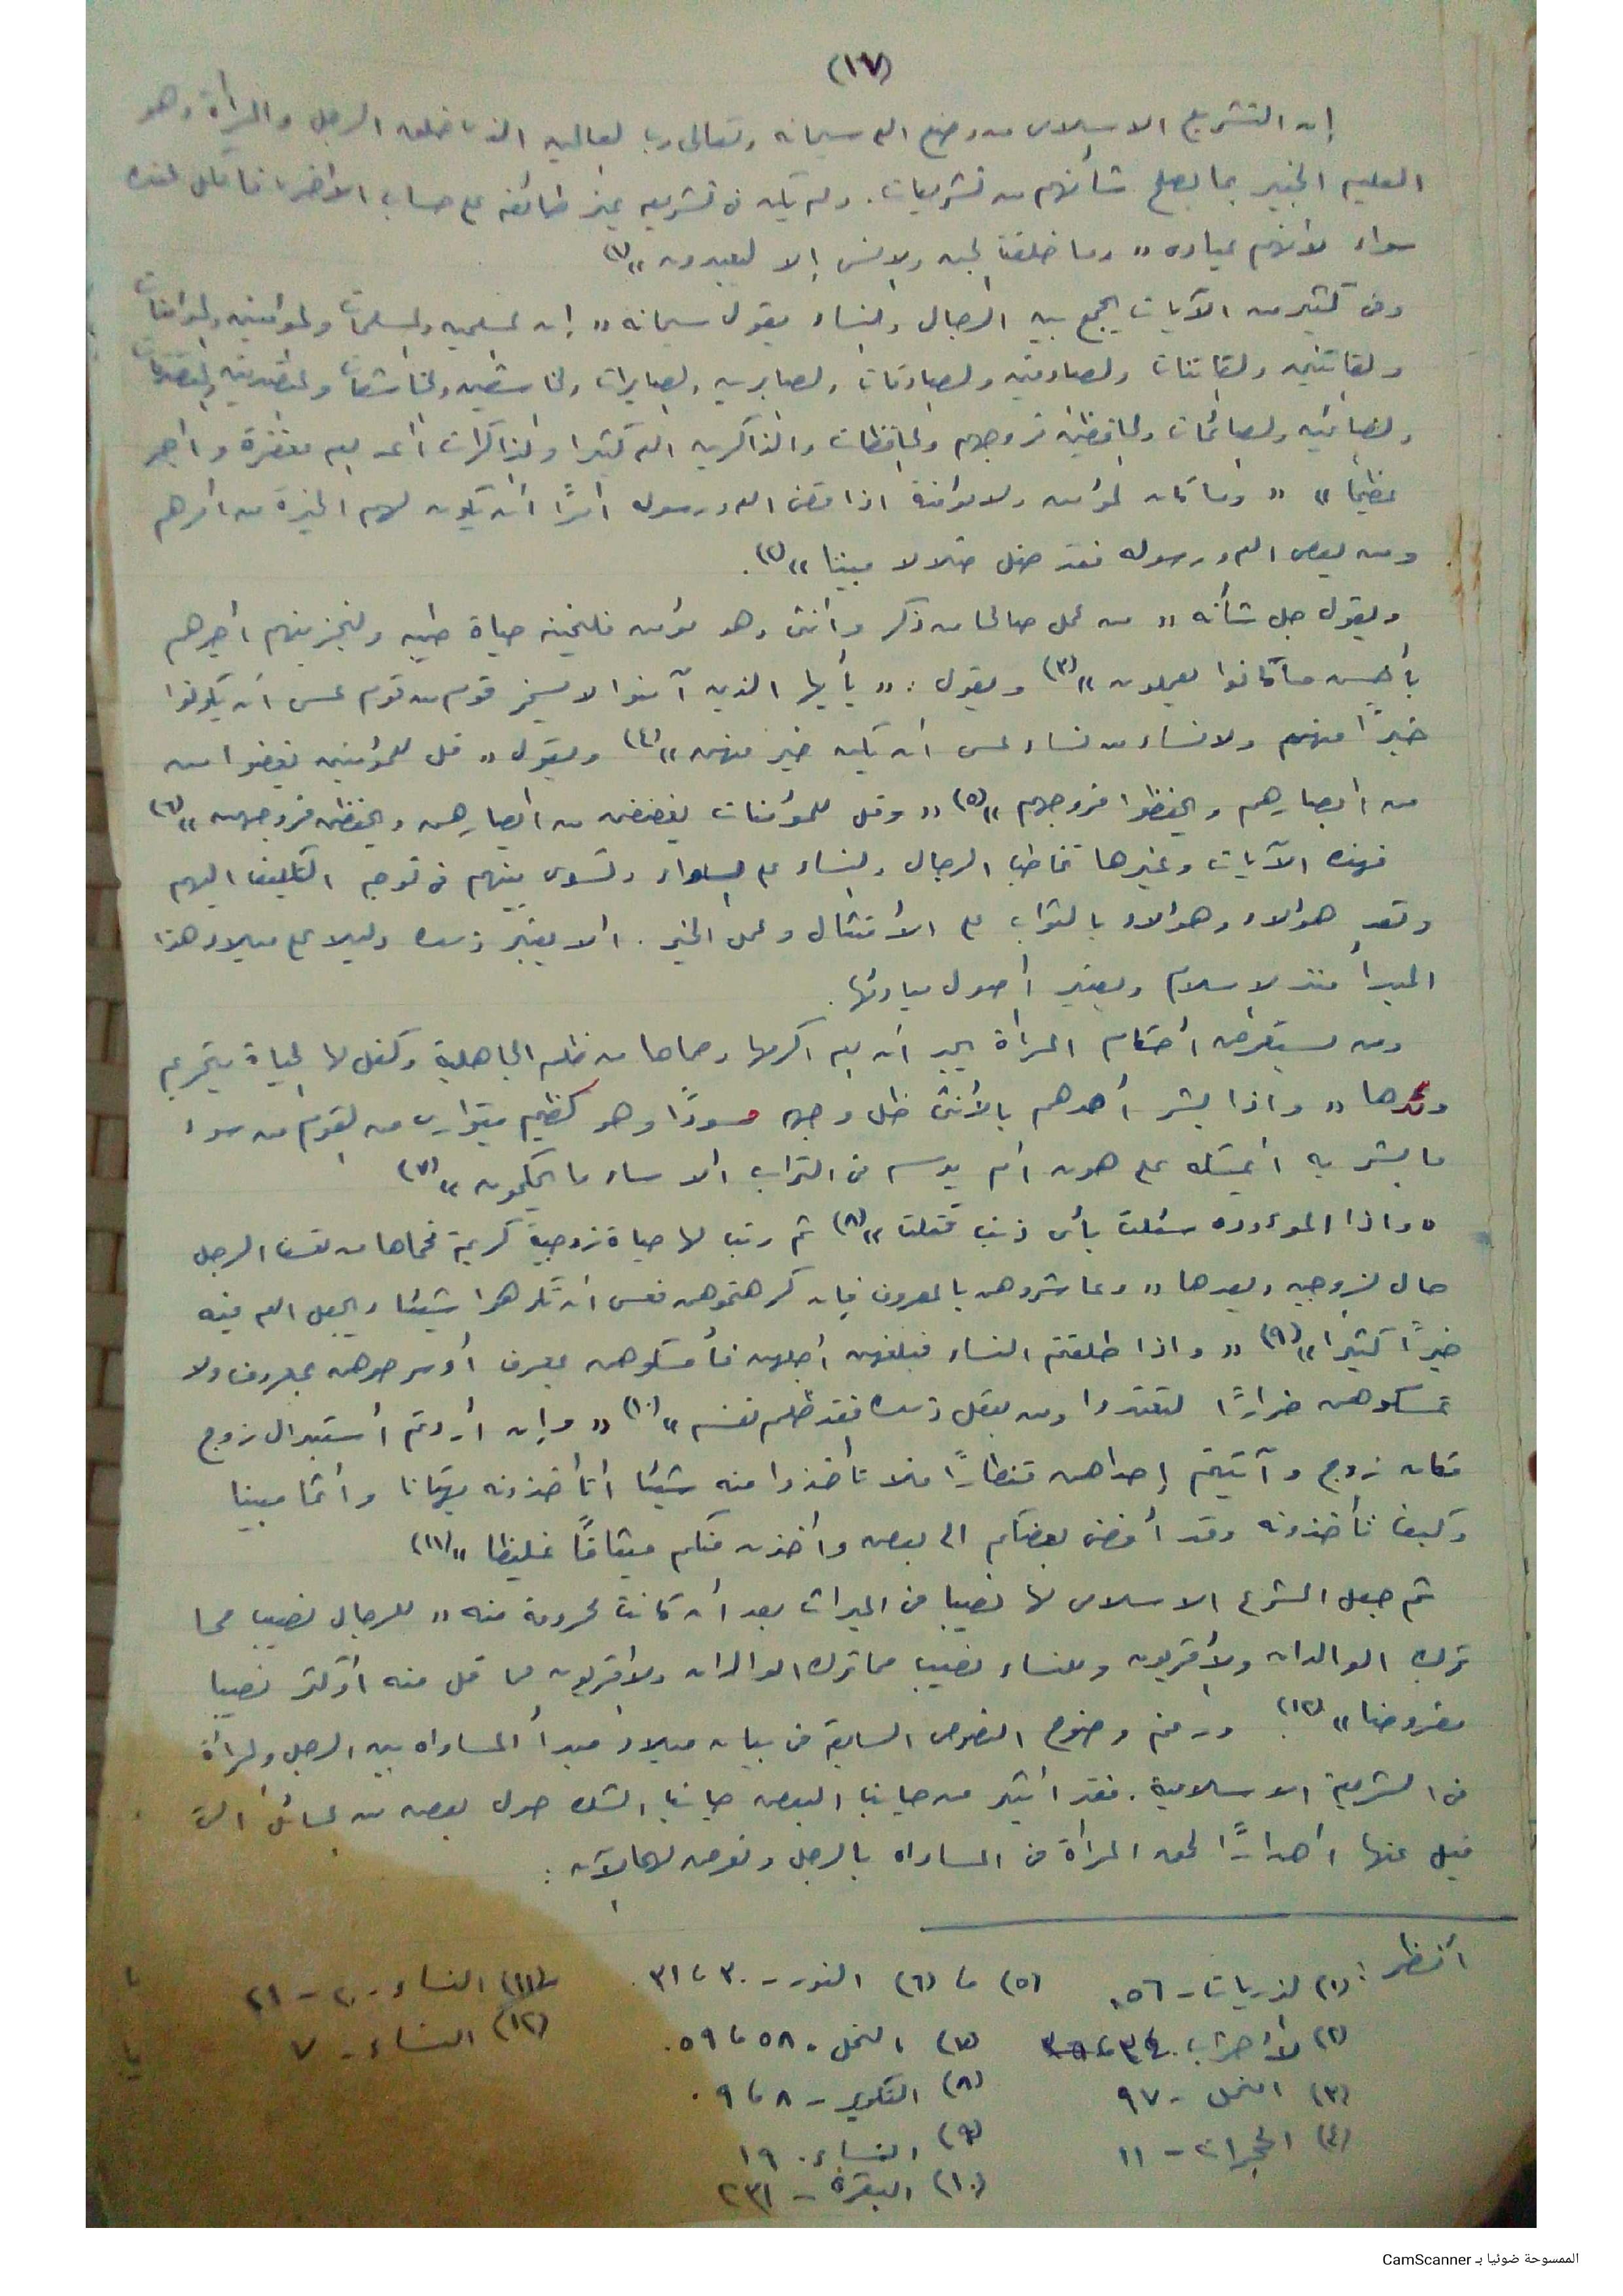 (١٧)
إن التشريع الاسلامى من وضع الله سبحانه وتعالى رب العالمين الذى خلق الرجل والمرأة وهو
العليم الخبير بما يصلح شأنهم من تشريعات. ولم يكن فى تشريعه يميز طائفه على حساب الأخرى فالكل عنده
سواء لأنهم عباده «وما خلقت الجن والانس إلا ليعبدون» (١)
وفى كثير من الآيات يجمع بين الرجال والنساء يقول سبحانه «إن المسلمين والمسلمات والمؤمنين والمؤمنات
والقانتين والقانتات والصادقين والصادقات والصابرين والصابرات والخاشعين والخاشعات والمتصدقين والمتصدقات
والصائمين والصائمات والحافظين فروجهم والحافظات والذاكرين الله كثيرا والذاكرات أعد لهم مغفرة واجر
عظيما» «وما كان لمؤمن ولا مؤمنة اذا قضى الله ورسوله امرًا أن يكون لهم الخيرة من امرهم
ومن يعص الله ورسوله فقد ضل ضلالا مبينا» (٢).
ويقول جل شأنه «من عمل صالحا من ذكر وانثى وهو مؤمن فلنحيينه حياة طيبه ولنجزينهم اجرهم
بأحسن ما كانوا يعملون» (٣) ويقول: «يأيها الذين آمنوا لا يسخر قوم من قوم عسى أن يكونوا
خيرًا منهم ولا نساء من نساء عسى ان يكن خير منهن» (٤) ويقول «قل للمؤمنين يغضوا من
من ابصارهم ويحفظوا فروجهم» (٥) «وقل للمؤمنات يغضضن من ابصارهن ويحفظن فروجهن» (٦)
فهذه الآيات وغيرها تخاطب الرجال والنساء على السواء وتسوى بينهم فى توجيه التكليف اليهم
وتعد هؤلاء وهؤلاء بالثواب على الأمتثال وعمل الخير. الا يعتبر ذلك دليلا على ميلاد هذا
المبدأ منذ الاسلام ويعتبر أصول مبادئها.
ومن يستعرض أحكام المرأة يجد ان الله اكرمها وحماها من ظلم الجاهلية وكفل لها الحياة بتحريم
وئدها «واذا بشر أحدهم بالأنثى ظل وجهه مسودًا وهو كظيم يتوارى من القوم من سوء
ما بشر به أيمسكه على هون أم يدسه فى التراب الا ساء ما يحكمون» (٧)
«واذا الموءوده سئلت بأى ذنب قتلت» (٨) ثم رتب لها حياة زوجية كريمة فحماها من تعسف الرجل
حال الزوجيه وبعدها «وعاشروهن بالمعروف فإن كرهتموهن فعسى ان تكرهوا شيئا ويجعل الله فيه
خيرًا كثيرًا» (٩) «واذا طلقتم النساء فبلغهن أجلهن فأمسكوهن بمعرف أو سرحوهن بمعروف ولا
تمسكوهن ضرارًا لتعتدوا ومن يفعل ذلك فقد ظلم نفسه» (١٠) «وإن أردتم أستبدال زوج
مكان زوج وآتيتم إحداهن قنطارًا فلا تأخذوا منه شيئا اتأخذونه بهتانا واثما مبينا
وكيف تأخذونه وقد أفضى بعضكم الى بعض وأخذن منكم ميثاقًا غليظا» (١١)
ثم جعل المشرع الاسلامى لها نصيبا فى الميراث بعد أن كانت محرومة منه «للرجال نصيب مما
ترك الوالدان والأقربون وللنساء نصيب مما ترك الوالدان والاقربون مما قل منه أو كثر نصيبا
مفروضا» (١٢). ورغم وضوح النصوص السابقة فى بيان ميلاد مبدأ المساواه بين الرجل والمرأة
فى الشريعة الاسلامية. فقد أثير من جانب البعض جانب الشك حول بعض من المسائل التى
قيل عنها اهدارًا لحق المرأة فى المساواه بالرجل ونعرض لها الآن:
أنظر:
(١) الذريات - ٥٦.
(٢) الأحزاب. ٣٤،
(٣) النحل - ٩٧
(٤) الحجرات - ١١
(٥) ، (٦) النور - ٣٠، ٣١.
(٧) النحل - ٥٨، ٥٩.
(٨) التكوير - ٨، ٩.
(٩) النساء. ١٩
(١٠) البقرة - ٢٣١
(١١) النساء - ٢٠ - ٢١
(١٢) النساء - ٧
الممسوحة ضوئيا بـ CamScanner